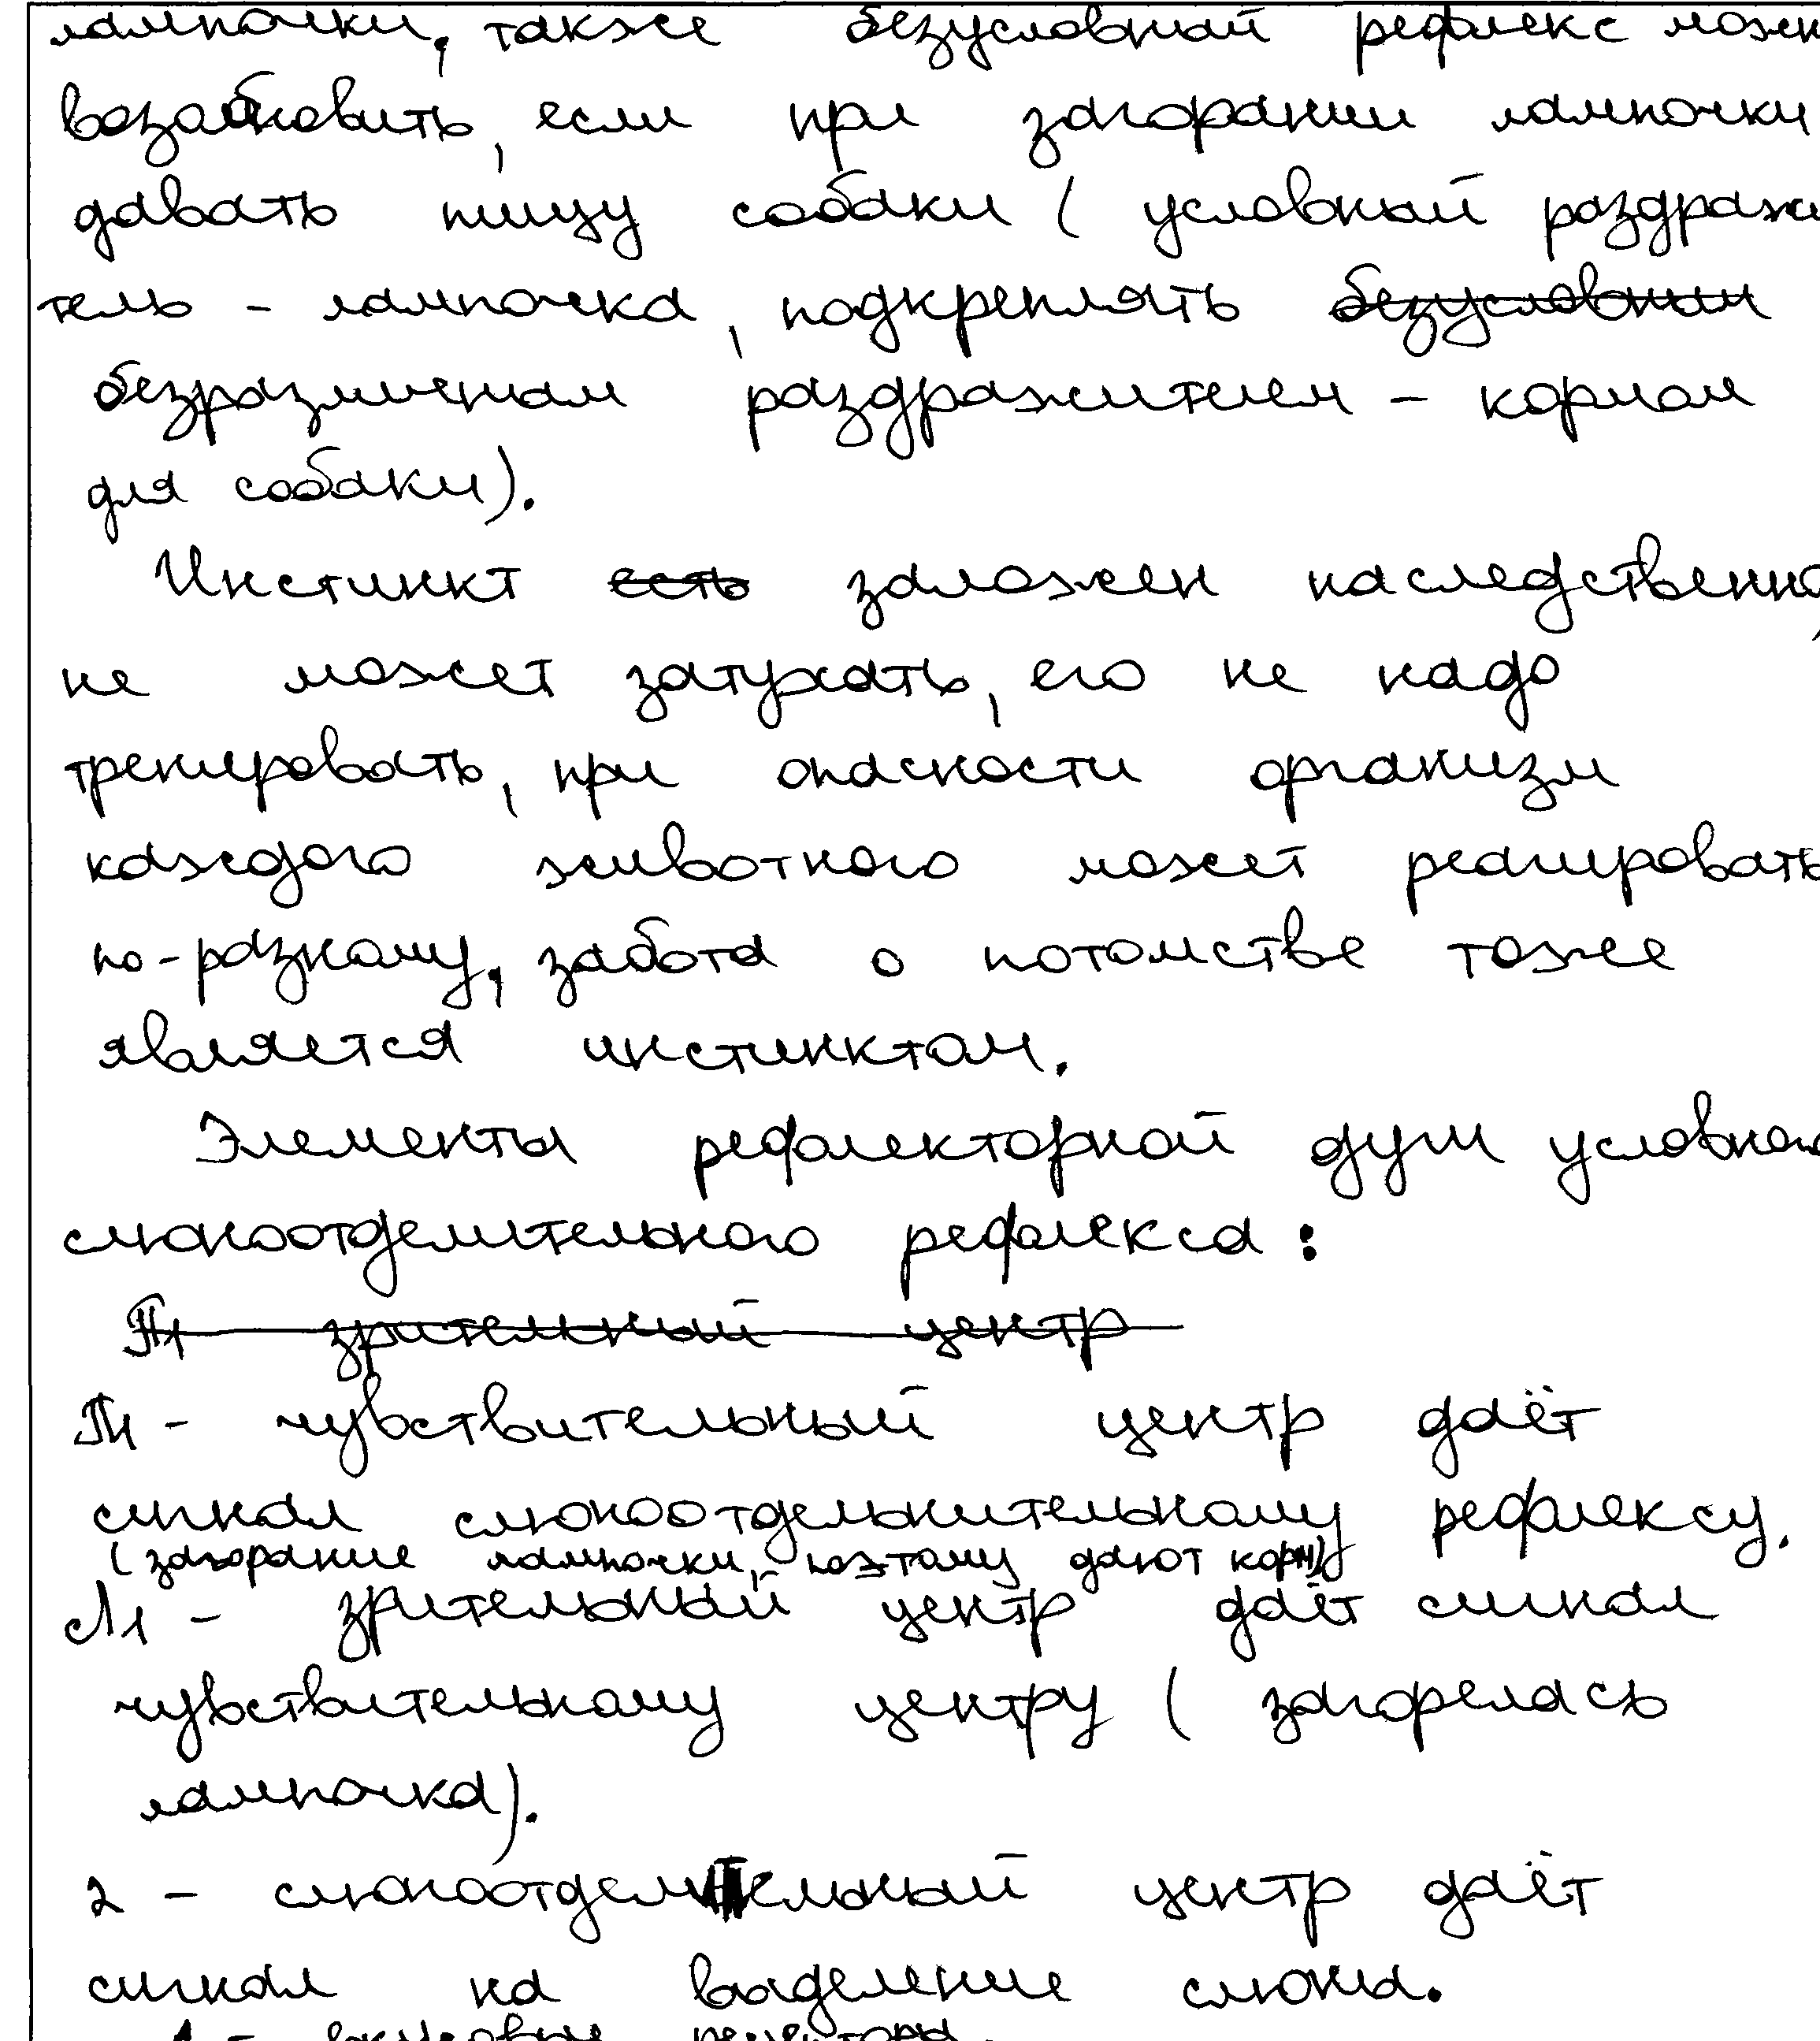 лампочки, также безусловный рефлекс можн
возабновить, если при загорании лампочки
давать пищу собаки ( условный раздражи
тель - лампочка, подкреплять безусловным
безразличным раздражителем - кормом
для собаки).
Инстинкт есть заложен наследственно,
не может затухать, его не надо
тренировать, при опасности организм
каждого животного может реагировать
по-разному, забота о потомстве тоже
является инстинктом.
Элементы рефлекторной дуги условного
слюноотделительного рефлекса:
П1 зрительный центр
П1 - чувствительный центр даёт
сигнал слюноотдельнительному рефлексу.
(загорание лампочки, поэтому дают корм)
Л1 - зрительный центр даёт сигнал
чувствительному центру ( загорелась
лампочка).
2 - слюноотделительный центр даёт
сигнал на выделение слюны.
1 - вкусовые рецепторы.